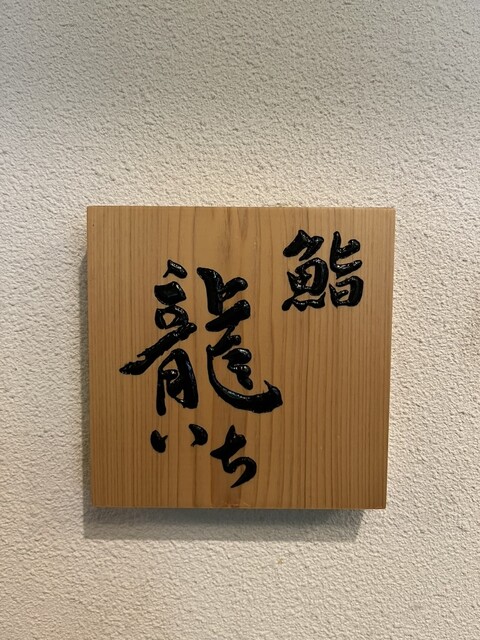 鮨
龍いち